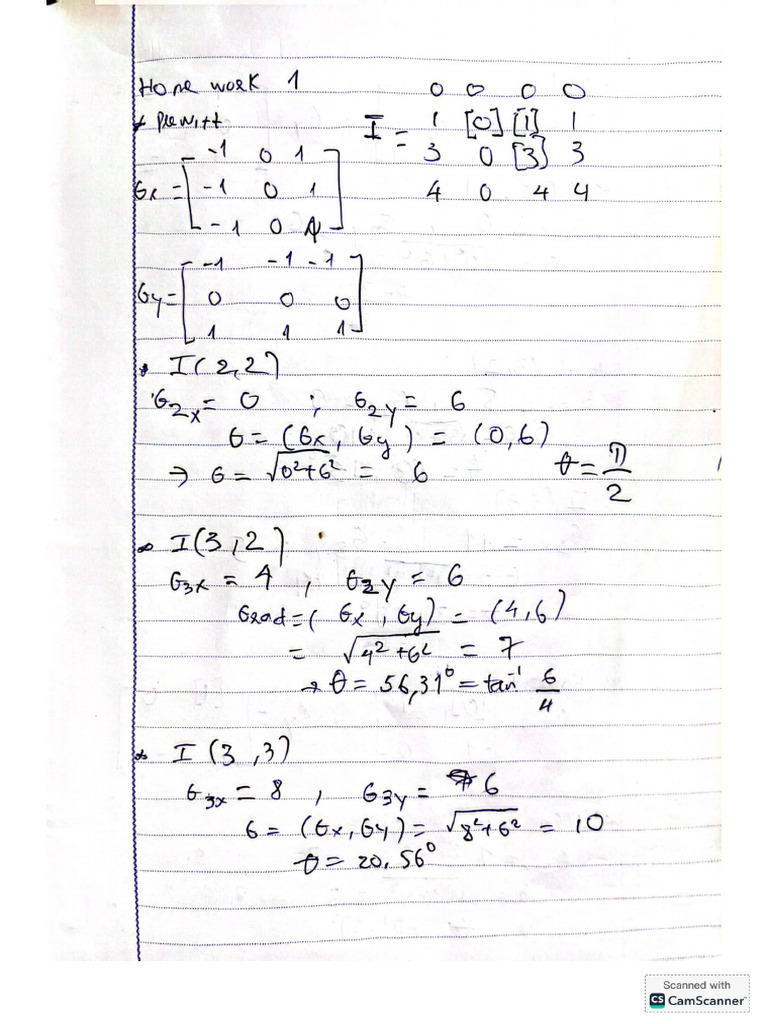 Home work 1
* Prewitt
I =
0 0 0 0
1 [0] [1] 1
3 0 [3] 3
4 0 4 4
Gx = [ -1 0 1
-1 0 1
-1 0 1 ]
Gy = [ -1 -1 -1
0 0 0
1 1 1 ]
* I(2,2)
G2x = 0 ; G2y = 6
G = (Gx, Gy) = (0,6)
→ G = √0²+6² = 6 θ = π/2
* I(3,2)
G3x = 4 , G2y = 6
Grad = ( Gx , Gy) = (4,6)
= √4²+6² = 7
→ θ = 56,31° = tan⁻¹ 6/4
* I (3,3)
G3x = 8 , G3y = 6
G = (Gx, Gy) = √8²+6² = 10
θ = 20.56°
Scanned with
CS CamScanner